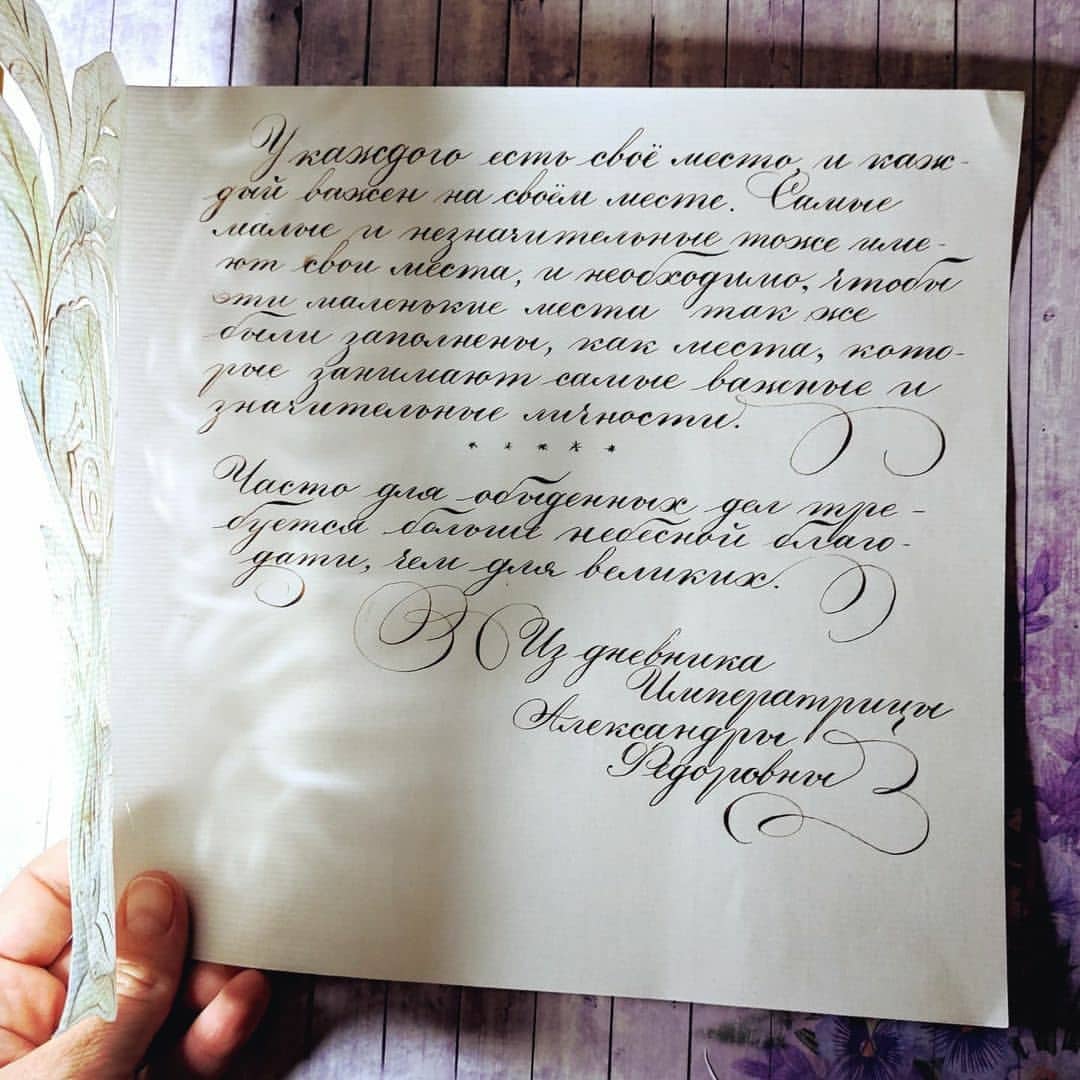 У каждого есть своё место, и каж-
дый важен на своём месте. Самые
малые и незначительные тоже име-
ют свои места, и необходимо, чтобы
эти маленькие места так же
были заполнены, как места, кото-
рые занимают самые важные и
значительные личности.
* * * * *
Часто для обыденных дел тре-
буется больше небесной благо-
дати, чем для великих.
Из дневника
Императрицы
Александры
Фёдоровны